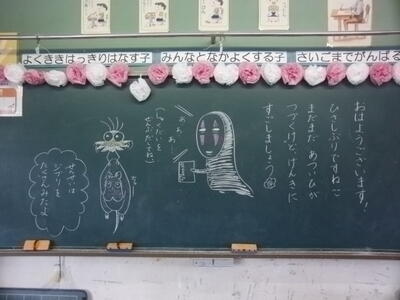 よくききはっきりはなす子
みんなとなかよくする子
さいごまでがんばる
おはようございます!
ひさしぶりですね
まだまだ あついひが
つづくけど、げんきに
すごしましょう
あぁ
あー
(しゅくだいを
ぜんぶだしてね)
せんせいは
ジブリを
たくさんみたよ